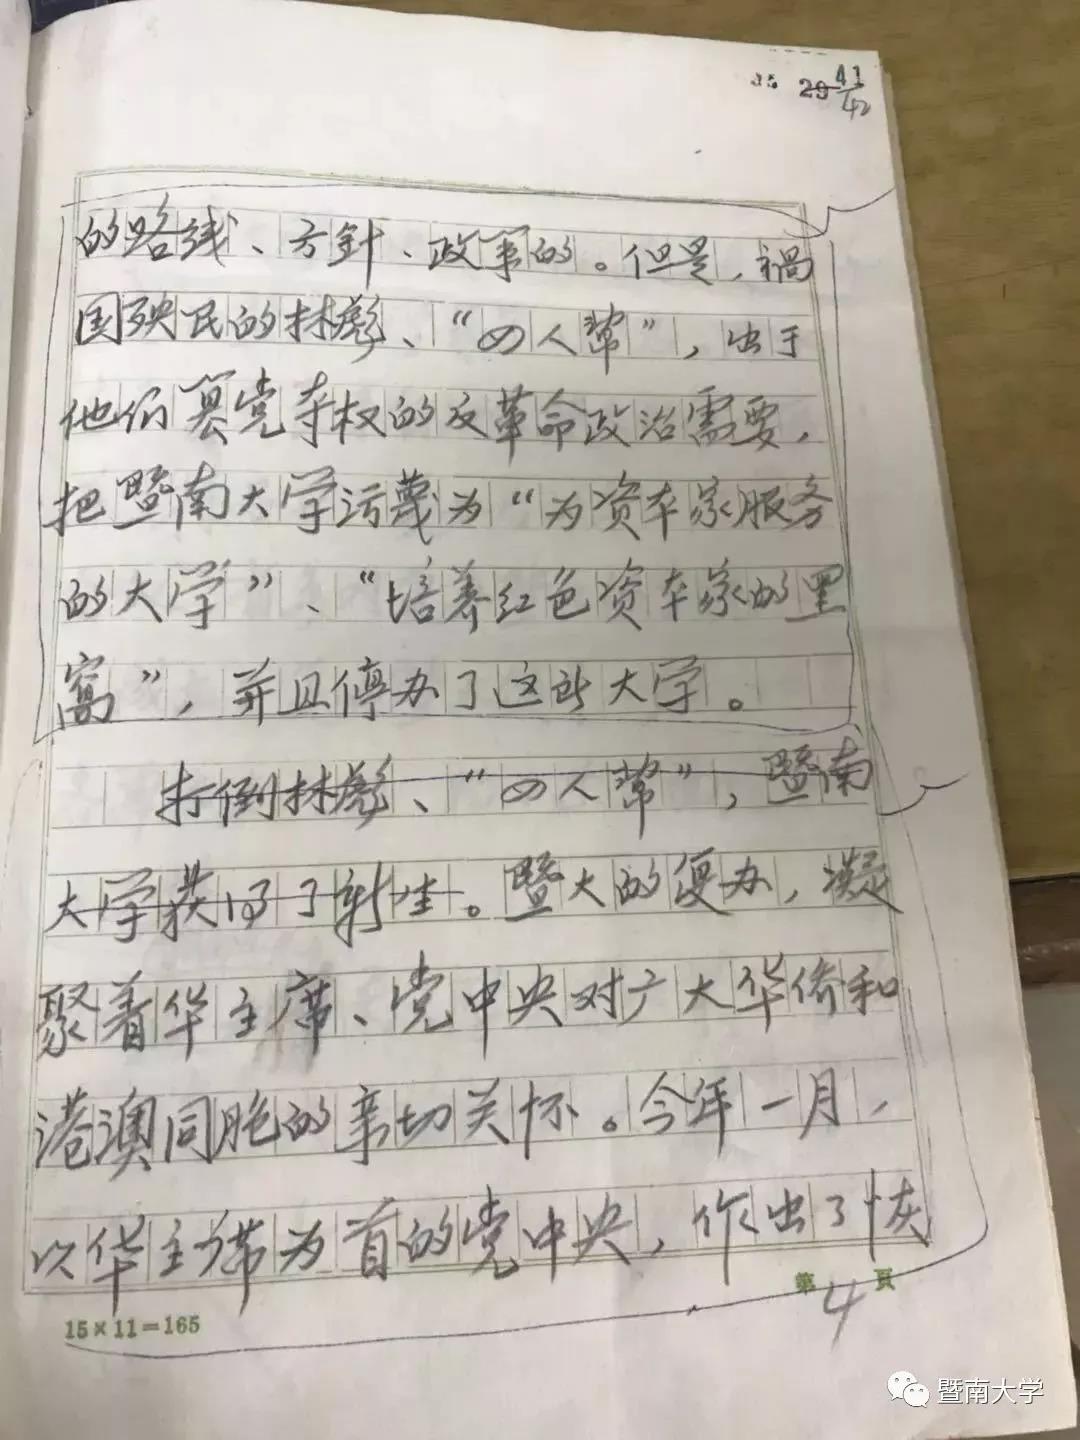 35 29 41/42
的路线、方針、政策的。但是，禍
国殃民的林彪、“四人幫”，出于
他们篡党夺权的反革命政治需要，
把暨南大学污蔑为“为资本家服务
的大学”、“培养红色资本家的黑
窝”，并且停办了这所大学。
打倒林彪、“四人幫”，暨南
大学获得了新生。暨大的复办，凝
聚着华主席、党中央对广大华侨和
港澳同胞的亲切关怀。今年一月，
以华主席为首的党中央，作出了恢
15×11=165
第4頁
暨南大学